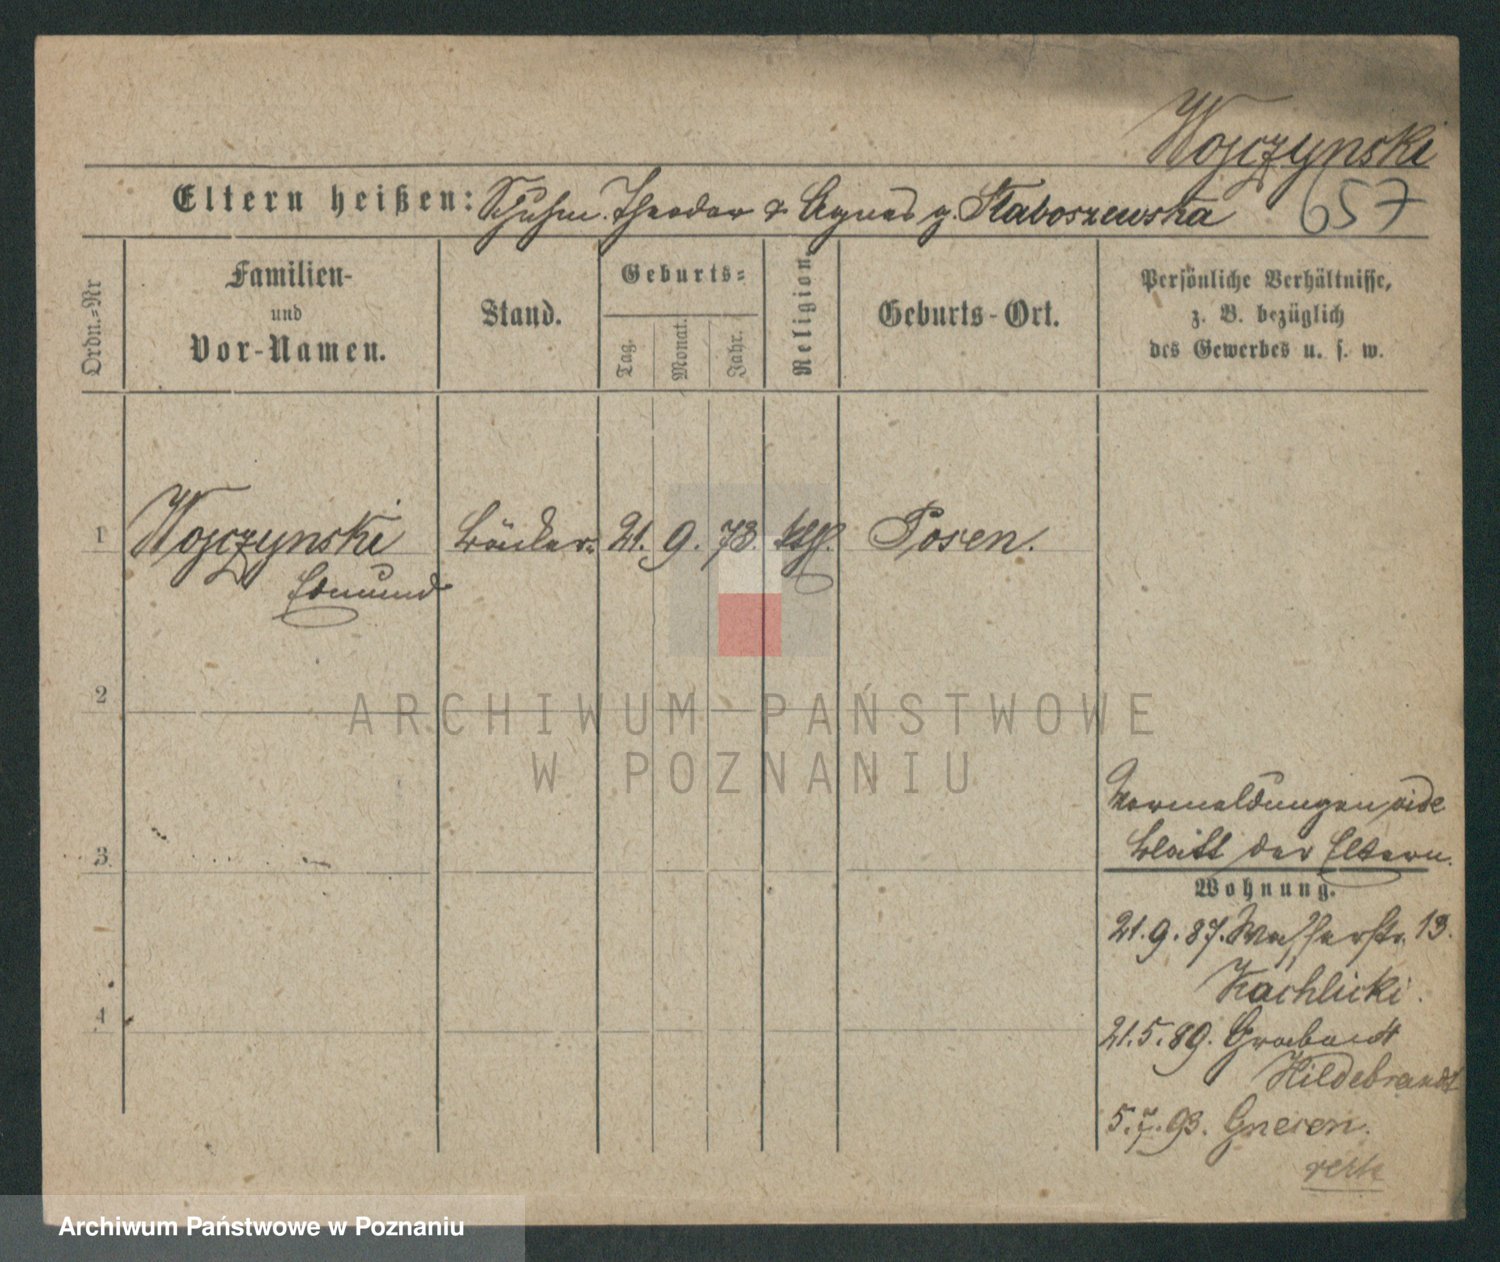 Wojczynski
Eltern heißen: Schuhm. Theodor & Agnes g. Staboszewska 657
Ordn.-Nr
Familien-
und
Vor-Namen.
Stand.
Geburts-
Tag.
Monat.
Jahr.
Religion.
Geburts-Ort.
Persönliche Verhältnisse,
z. B. bezüglich
des Gewerbes u. s. w.
1 Wojczynski Bäcker. 21. 9. 73. kth. Posen.
Edmund
2
ARCHIWUM PAŃSTWOWE
W POZNANIU
Vormeldungen vide
Blatt der Eltern.
3
Wohnung.
21.9.87. Wasserstr. 13.
Kachlicki.
4
21.5.89. Graben 4
Hildebrandt
5.7.93. Gnesen.
Archiwum Państwowe w Poznaniu